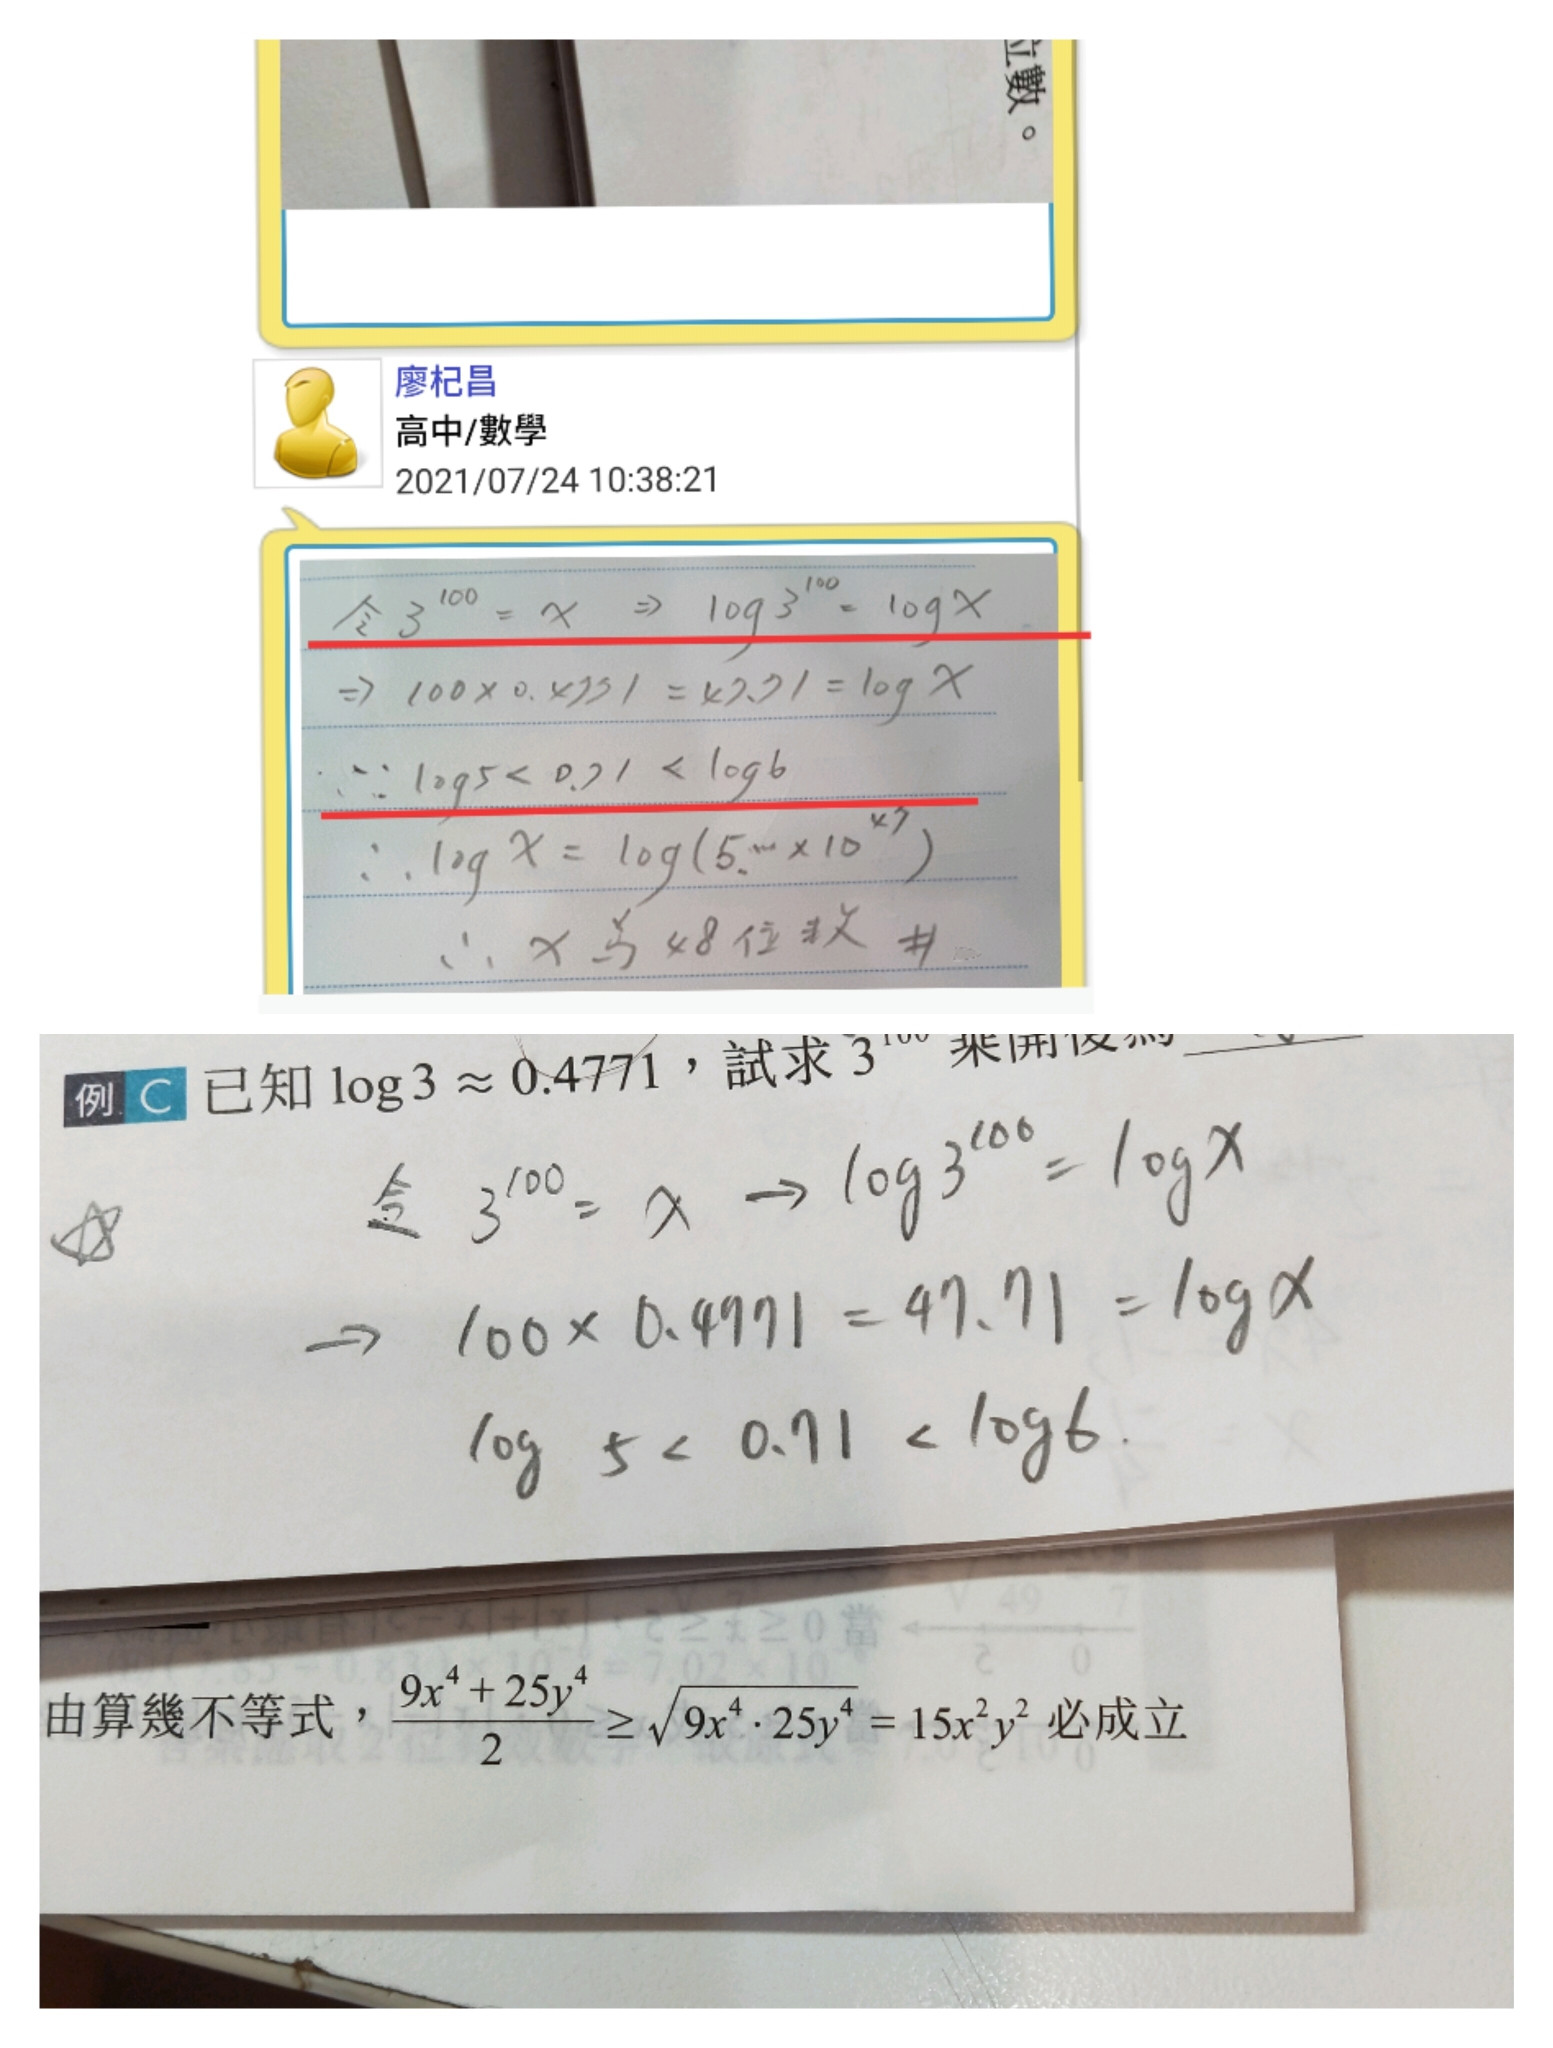 位數。
廖杞昌
高中/數學
2021/07/24 10:38:21
令 3^100 = x ⇒ log 3^100 = log x
⇒ 100 × 0.4771 = 47.71 = log x
∵ log5 < 0.71 < log6
∴ log x = log(5.… × 10^47)
∴ x 為 48 位数 #
例 C 已知 log 3 ≈ 0.4771，試求 3^100 乘開後為
令 3^100 = x → log 3^100 = log x
→ 100 × 0.4771 = 47.71 = log x
log 5 < 0.71 < log 6.
由算幾不等式，(9x^4 + 25y^4)/2 ≥ √(9x^4 · 25y^4) = 15x^2y^2 必成立